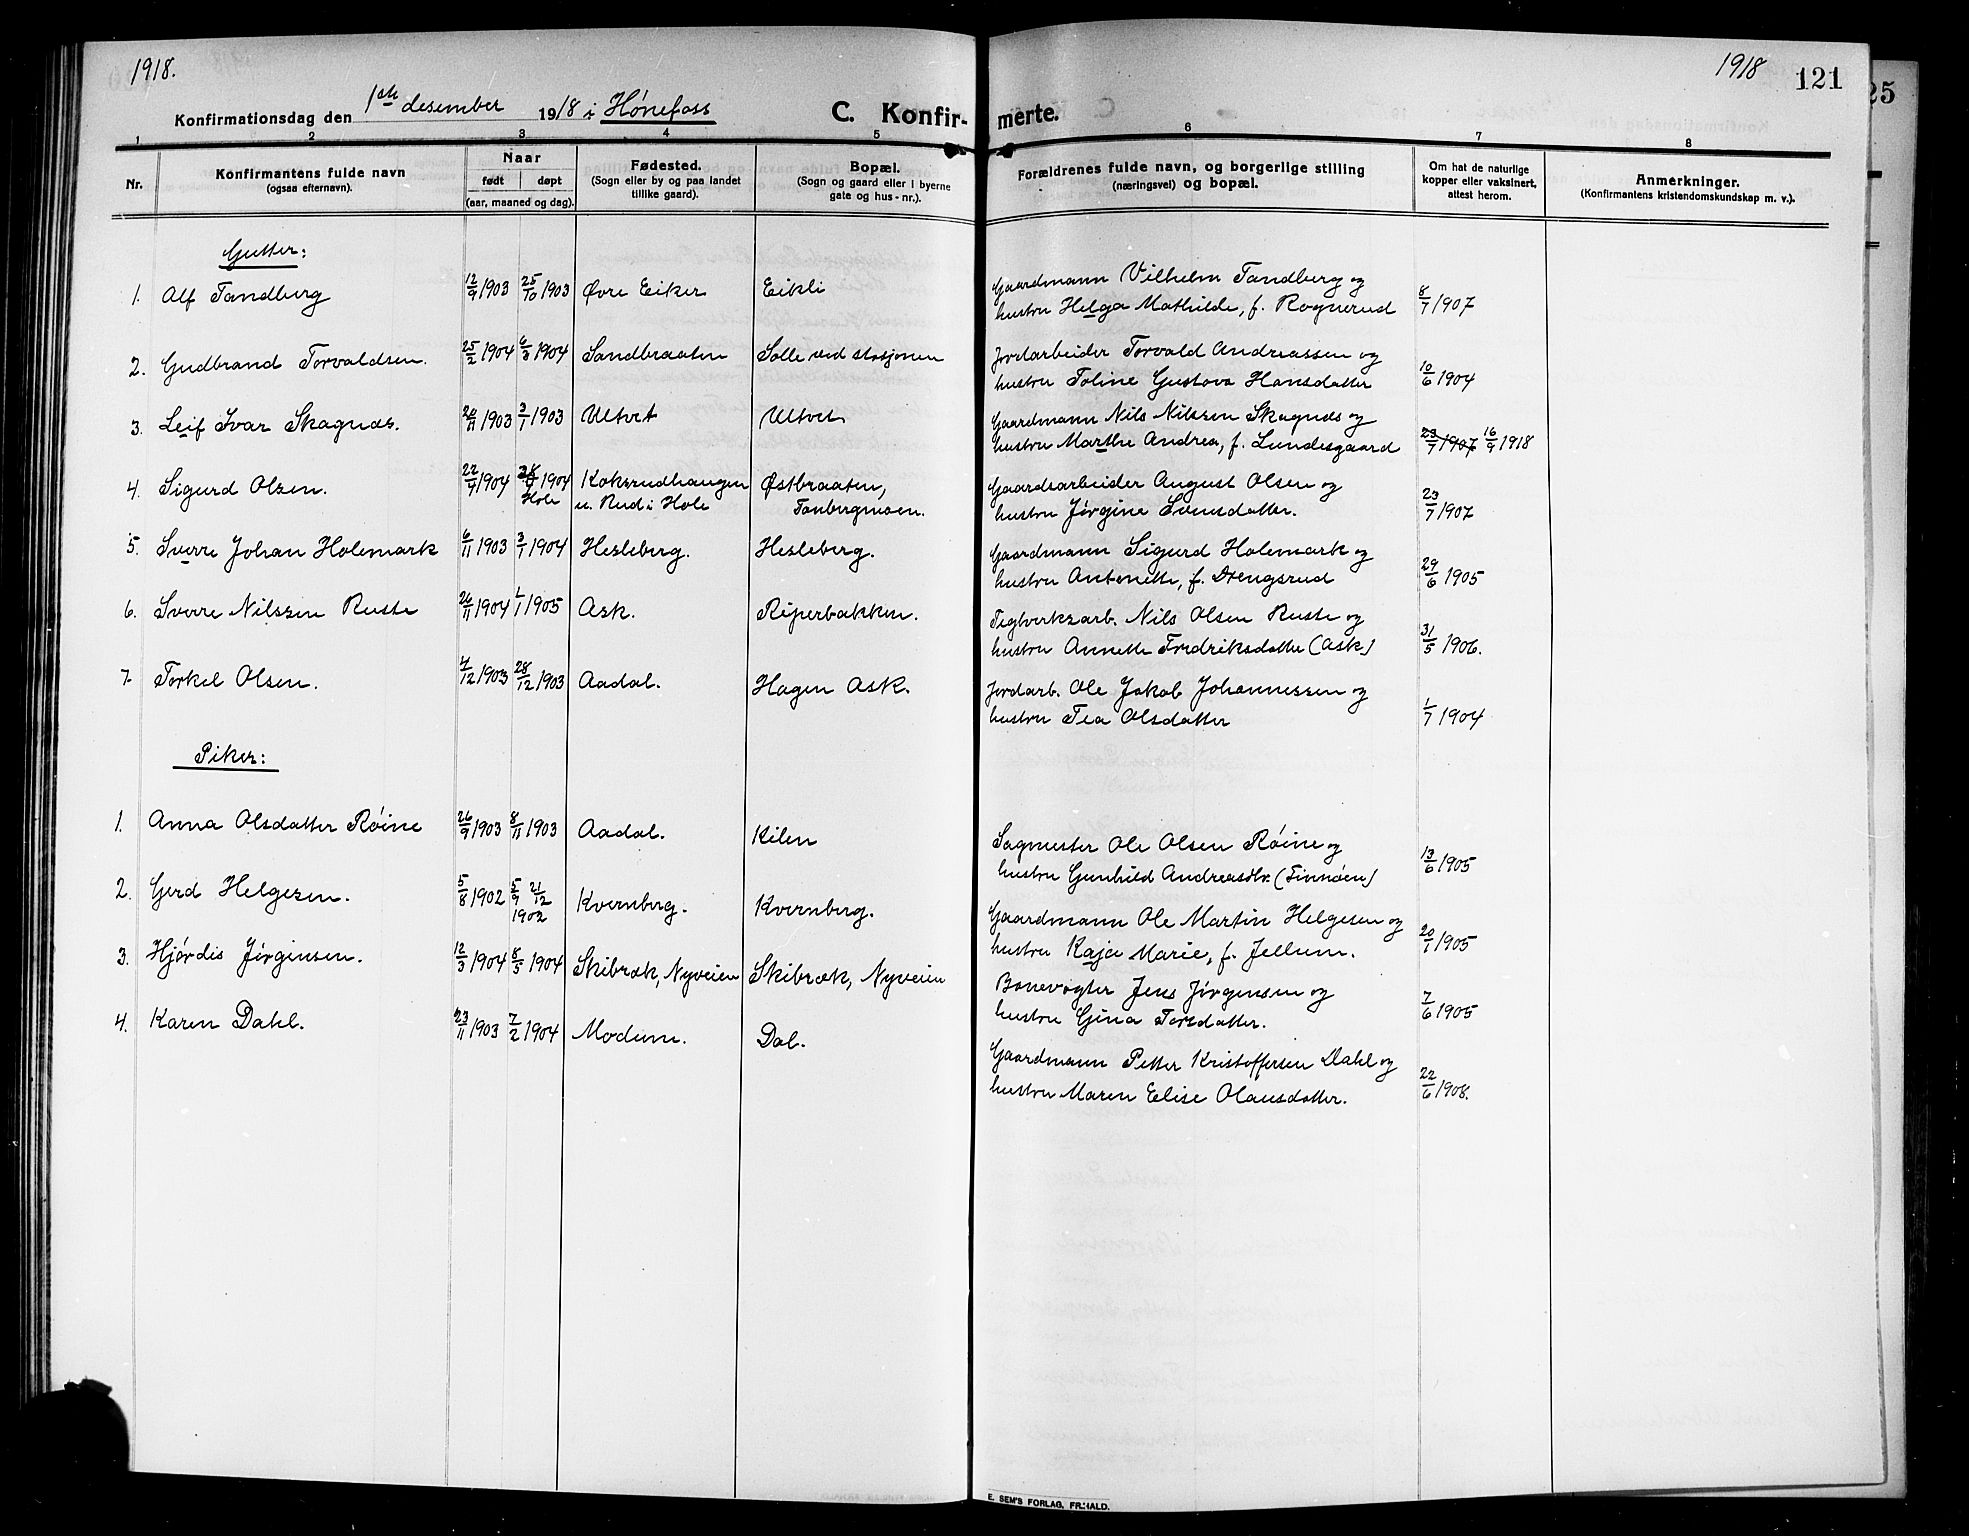 1918.
1918
121
25
Konfirmationsdag den 1ste desember 1918 i Hønefoss
C. Konfir-merte.
1 2 3 4 5 6 7 8
Nr.
Konfirmantens fulde navn
(ogsaa efternavn).
Naar
født døpt
(aar, maaned og dag).
Fødested.
(Sogn eller by og paa landet
tillike gaard).
Bopæl.
(Sogn og gaard eller i byerne
gate og hus-nr.).
Forældrenes fulde navn, og borgerlige stilling
(næringsvei) og bopæl.
Om hat de naturlige
kopper eller vaksinert,
attest herom.
Anmerkninger.
(Konfirmantens kristendomskundskap m. v.).
Gutter:
1. Alf Tandberg 12/9 1903 25/10 1903 Øvre Eiker Eikli Gaardmann Vilhelm Tandberg og
hustru Helga Mathilde, f. Rognerud 8/7 1907
2. Gudbrand Torvaldsen. 25/2 1904 6/3 1904 Sandbraaten Solle ved stasjonen Jordarbeider Torvald Andreassen og
hustru Toline Gustava Hansdatter 10/6 1904
3. Leif Ivar Skagnæs. 1903 3/1 1903 Ultvet Ultvet Gaardmann Nils Nilssen Skagnæs og
hustru Marthe Andrea, f. Lundesgaard 23/7 1907 16/9 1918
4. Sigurd Olsen. 1904 1904 Koksrudhaugen Østbraaten, Gaardsarbeider August Olsen og
Hole u. Rud i Hole Tanbergmoen. hustru Jørgine Svensdatter. 23/7 1907
5. Sverre Johan Holemark 6/11 1903 3/1 1904 Hesleberg. Hesleberg. Gaardmann Sigurd Holemark og
hustru Antonette, f. Drengsrud 29/6 1905
6. Sverre Nilssen Ruste 26/11 1904 1/1 1905 Ask. Riperbakken. Teglverksarb. Nils Olsen Ruste og
hustru Annette Fredriksdatter (Ask) 31/5 1906.
7. Torkel Olsen. 7/12 1903 28/12 1903 Aadal. Hagen Ask. Jordarb. Ole Jakob Johannessen og
hustru Tea Olsdatter 1/7 1904
Piker:
1. Anna Olsdatter Røine 26/9 1903 8/11 1903 Aadal. Kilen Sagmester Ole Olsen Røine og
hustru Gunhild Andreasdtr. (Finnøen) 13/6 1905
2. Gerd Helgesen. 5/8 1902 5/9 21/12 Kvernberg. Kvernberg. Gaardmann Ole Martin Helgesen og
1902 hustru Kaja Marie, f. Jellum. 20/1 1905
3. Hjørdis Jørgensen. 12/3 1904 8/5 1904 Skibræk, Nyveien Skibræk, Nyveien Banevogter Jens Jørgensen og
hustru Gina Torsdatter. 7/6 1905
4. Karen Dahl. 23/11 1903 7/2 1904 Modum. Dal. Gaardmann Petter Kristoffersen Dahl og
hustru Maren Elise Olausdatter. 22/6 1908.
E. SEM'S FORLAG, FR.HALD.